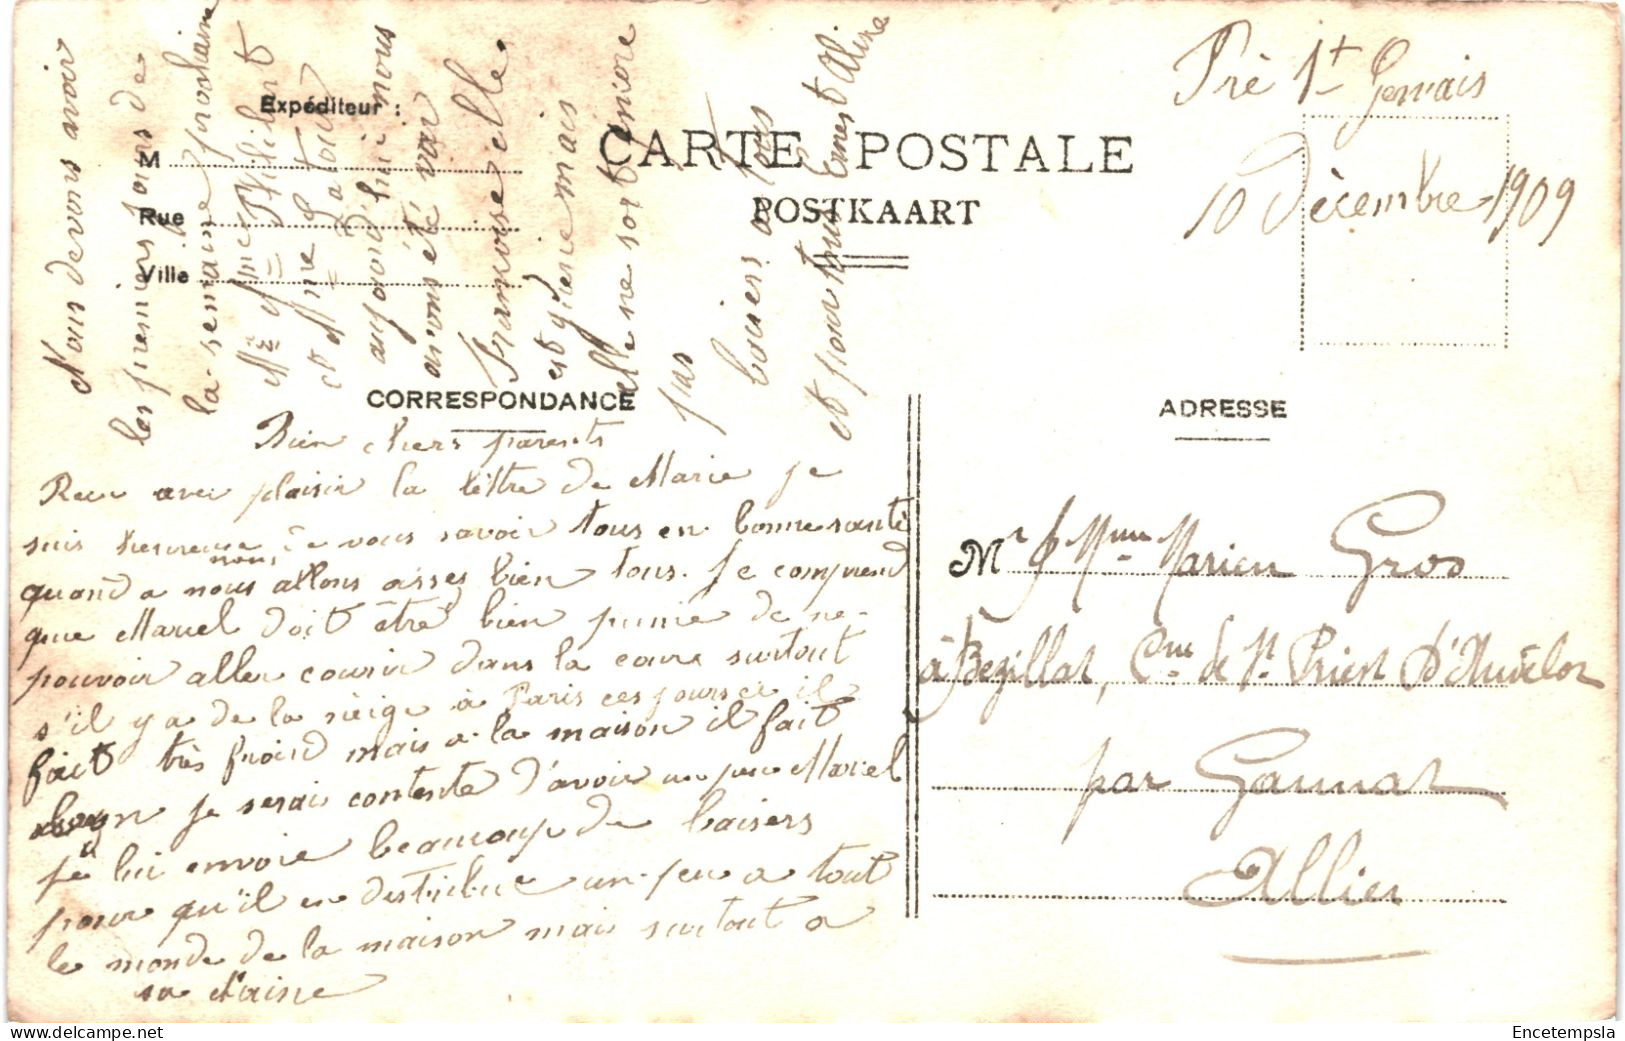 Pré St Gervais
10 Décembre 1909
CARTE POSTALE
POSTKAART
Expéditeur :
M
Rue
Ville
CORRESPONDANCE
ADRESSE
Bien chers parents
Reçu avec plaisir la lettre de Marie je
suis heureuse de vous savoir tous en bonne santé
quand a nous nous allons assez bien tous. Je comprend
que Marcel doit être bien punie de ne
pouvoir aller courir dans la cour surtout
s'il y a de la neige à Paris ces jours ci il
fait très froid mais a la maison il fait
bon je serais contente d'avoir un peu Marcel
je lui envoie beaucoup de baisers
pour qu'il en distribue un peu a tout
le monde de la maison mais surtout a
sa
Nous devons avoir
les premiers jours de
la semaine prochaine
Mr et Mme Philibert
et Mme
aujourd'hui nous
avons été voir
Françoise elle
est guerie mais
elle ne sort encore
pas
baisers a tous
et pour tous Ernest Aline
Mr & Mme Marien Gros
à Bezillat, Cne de St Priest D'Andelot
par Gannat
Allier
Encetempsla